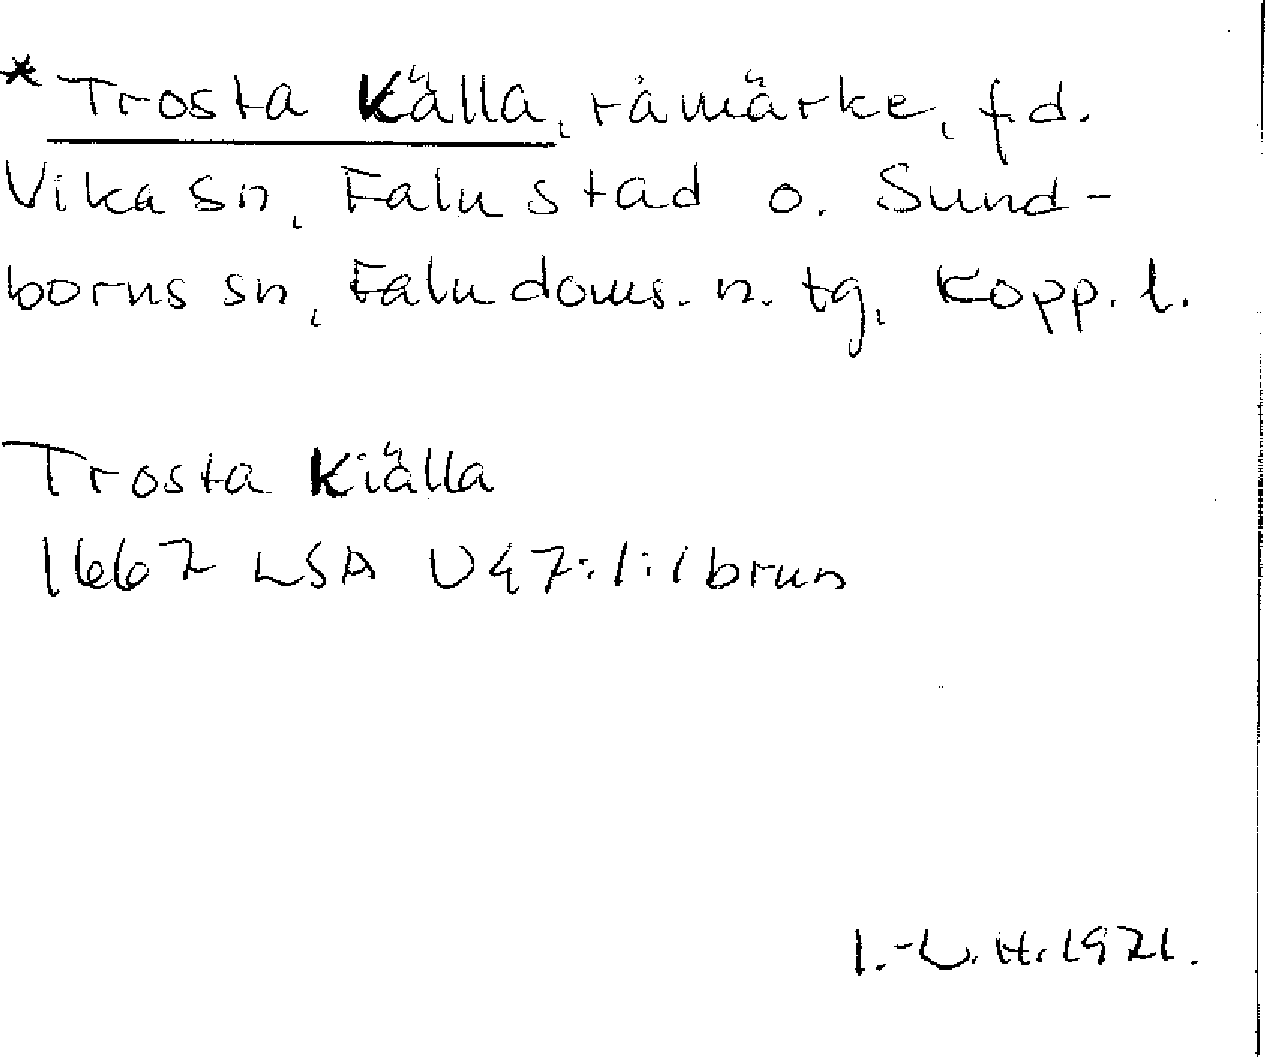 * Trosta Källa, råmärke, f.d.
Vika sn, Falu stad o. Sund-
borns sn, Falu doms. n. tg, Kopp. l.
Trosta Kiälla
1667 LSA U47:1:1 brun
I.-L. H. 1971.